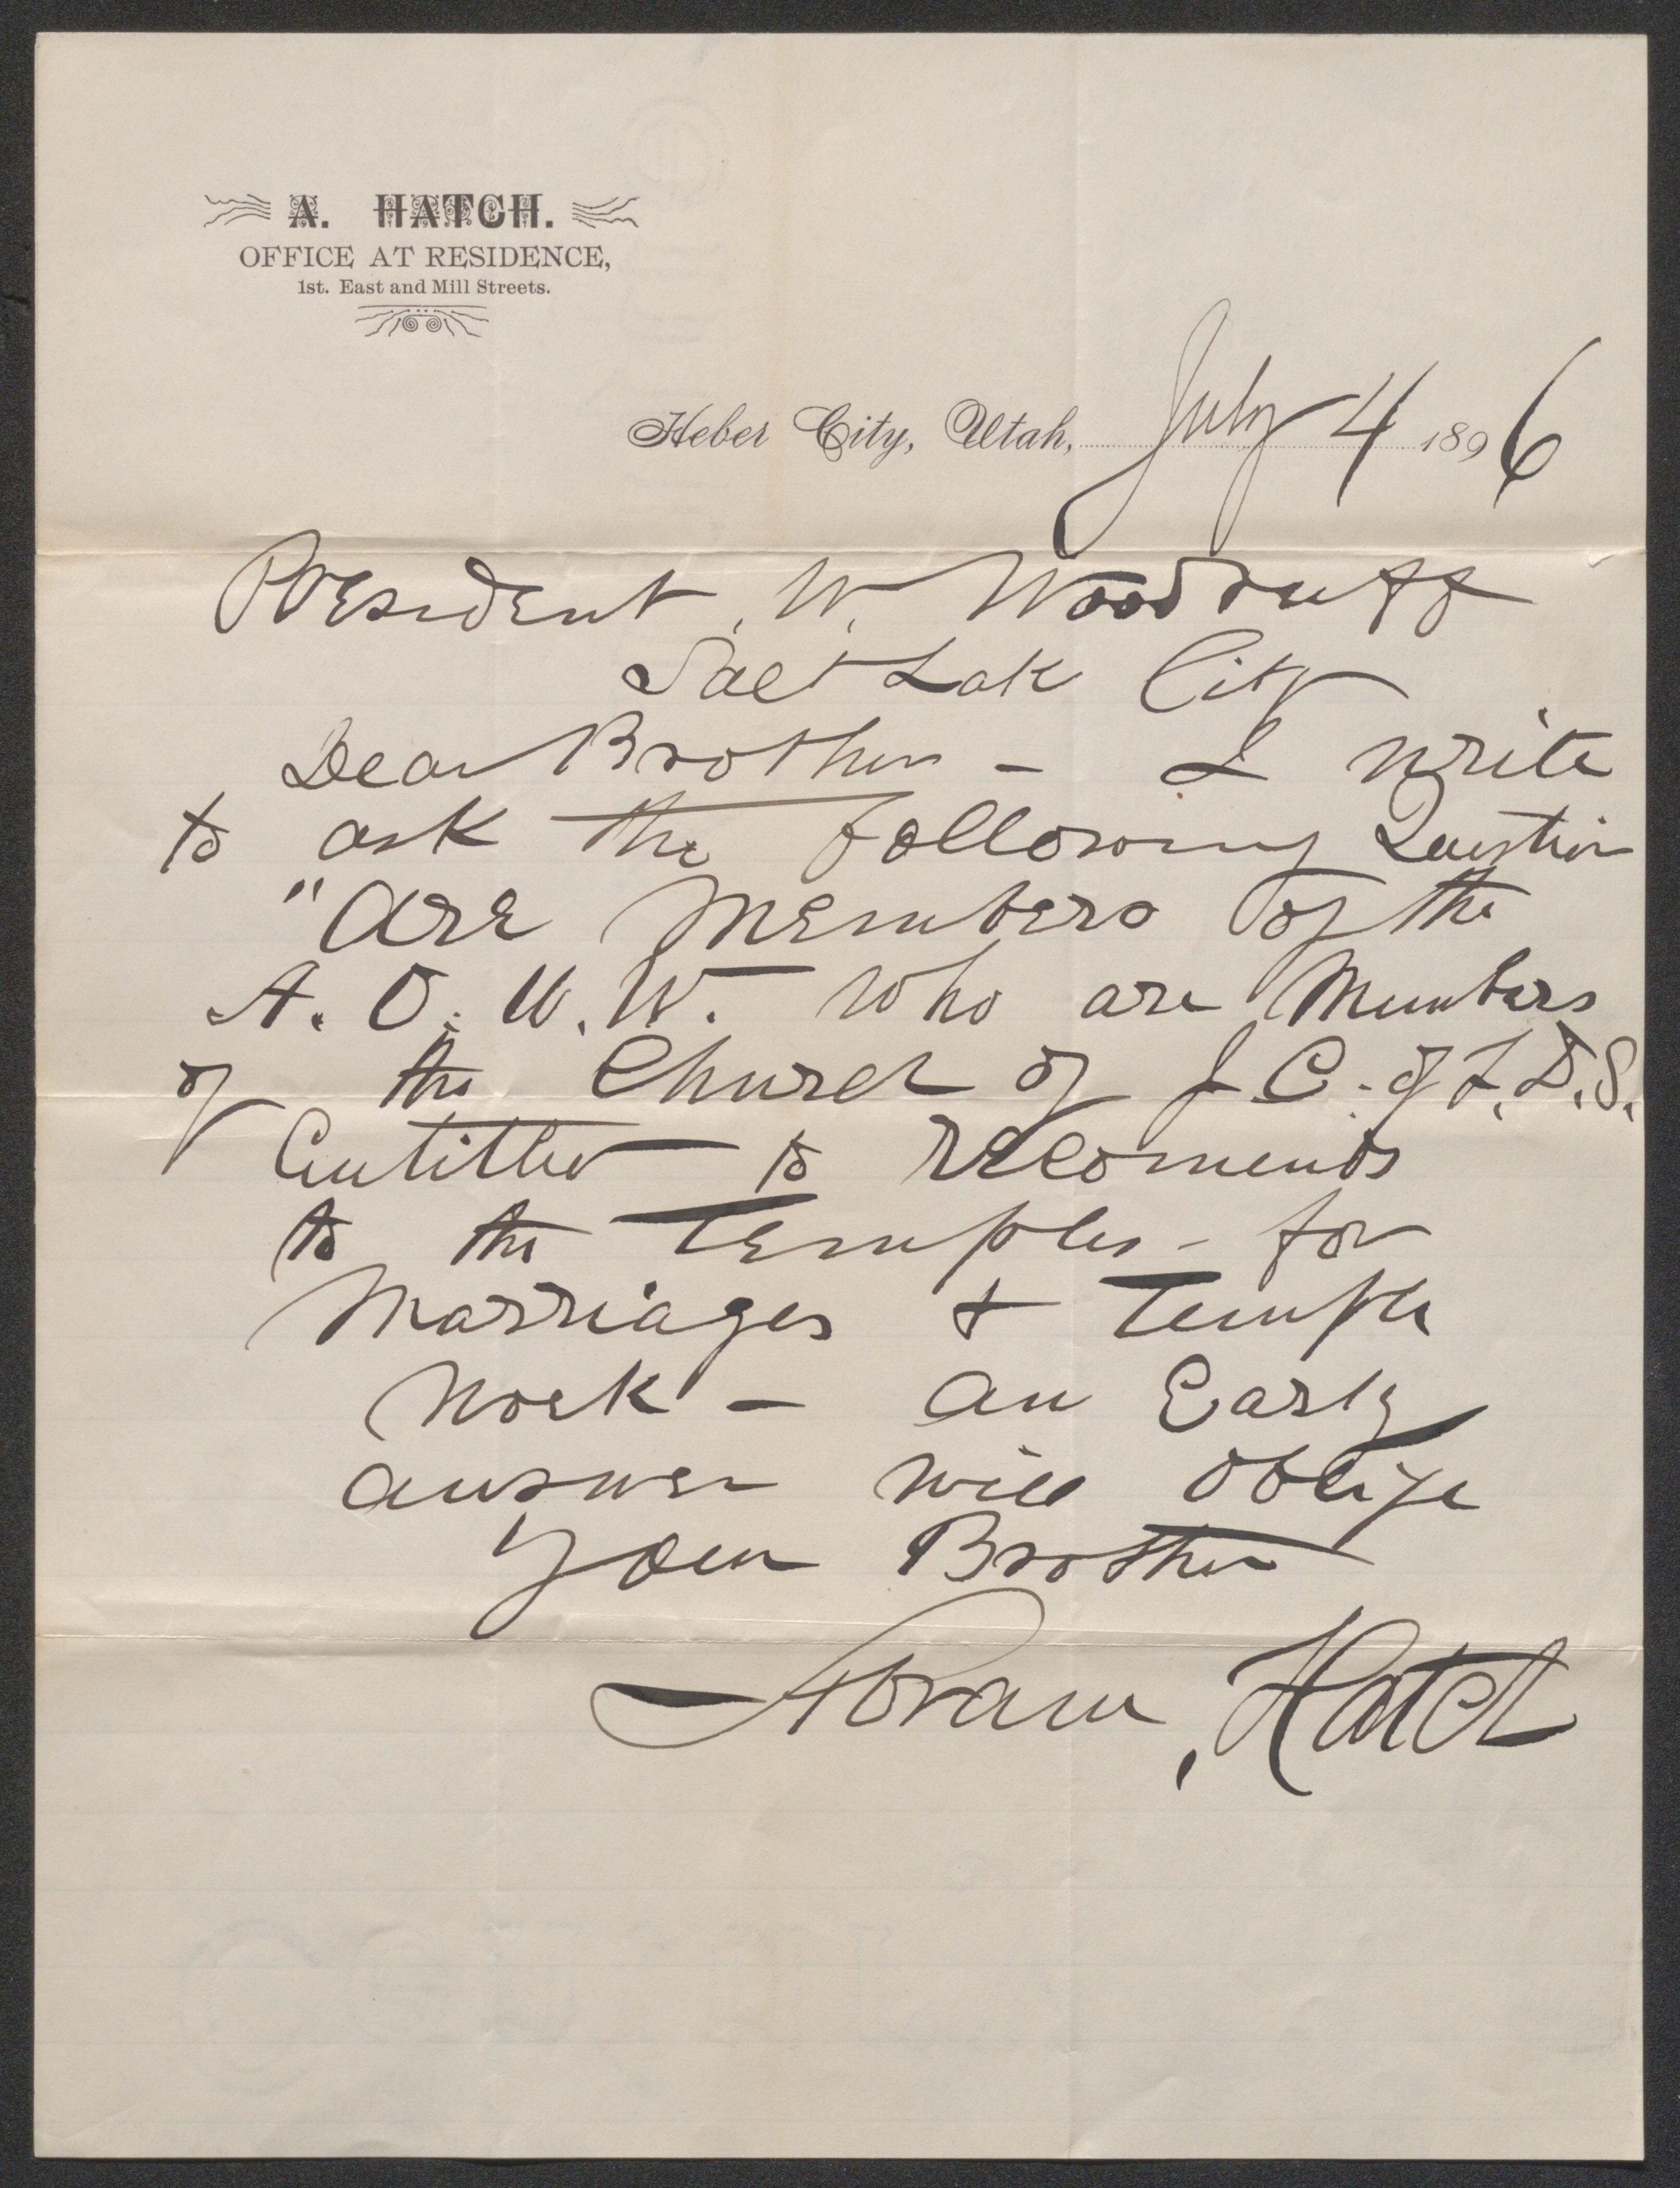 A. HATCH.
OFFICE AT RESIDENCE,
1st. East and Mill Streets.
Heber City, Utah, July 4 1896
President W. Woodruff
Salt Lake City
Dear Brother - I write
to ask the following Question
"Are Members of the
A. O. U. W. who are Members
of the Church of J C. of L. D. S.
Entitled to Recomends
to the Temples - for
Marriages & Temple
Work - an Early
answer will oblige
Your Brother
Abram Hatch